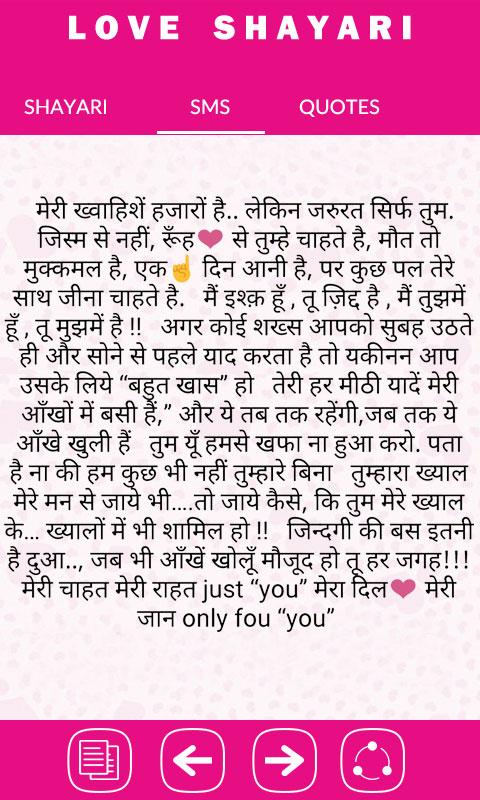 LOVE SHAYARI
SHAYARI SMS QUOTES
मेरी ख्वाहिशें हजारों है.. लेकिन जरुरत सिर्फ तुम.
जिस्म से नहीं, रूँह❤ से तुम्हे चाहते है, मौत तो
मुक्कमल है, एक☝ दिन आनी है, पर कुछ पल तेरे
साथ जीना चाहते है. मैं इश्क़ हूँ , तू ज़िद्द है , मैं तुझमें
हूँ , तू मुझमें है !! अगर कोई शख्स आपको सुबह उठते
ही और सोने से पहले याद करता है तो यकीनन आप
उसके लिये “बहुत खास” हो तेरी हर मीठी यादें मेरी
आँखों में बसी हैं,” और ये तब तक रहेंगी,जब तक ये
आँखे खुली हैं तुम यूँ हमसे खफा ना हुआ करो. पता
है ना की हम कुछ भी नहीं तुम्हारे बिना तुम्हारा ख्याल
मेरे मन से जाये भी....तो जाये कैसे, कि तुम मेरे ख्याल
के... ख्यालों में भी शामिल हो !! जिन्दगी की बस इतनी
है दुआ.., जब भी आँखें खोलूँ मौजूद हो तू हर जगह!!!
मेरी चाहत मेरी राहत just “you” मेरा दिल❤ मेरी
जान only fou “you”